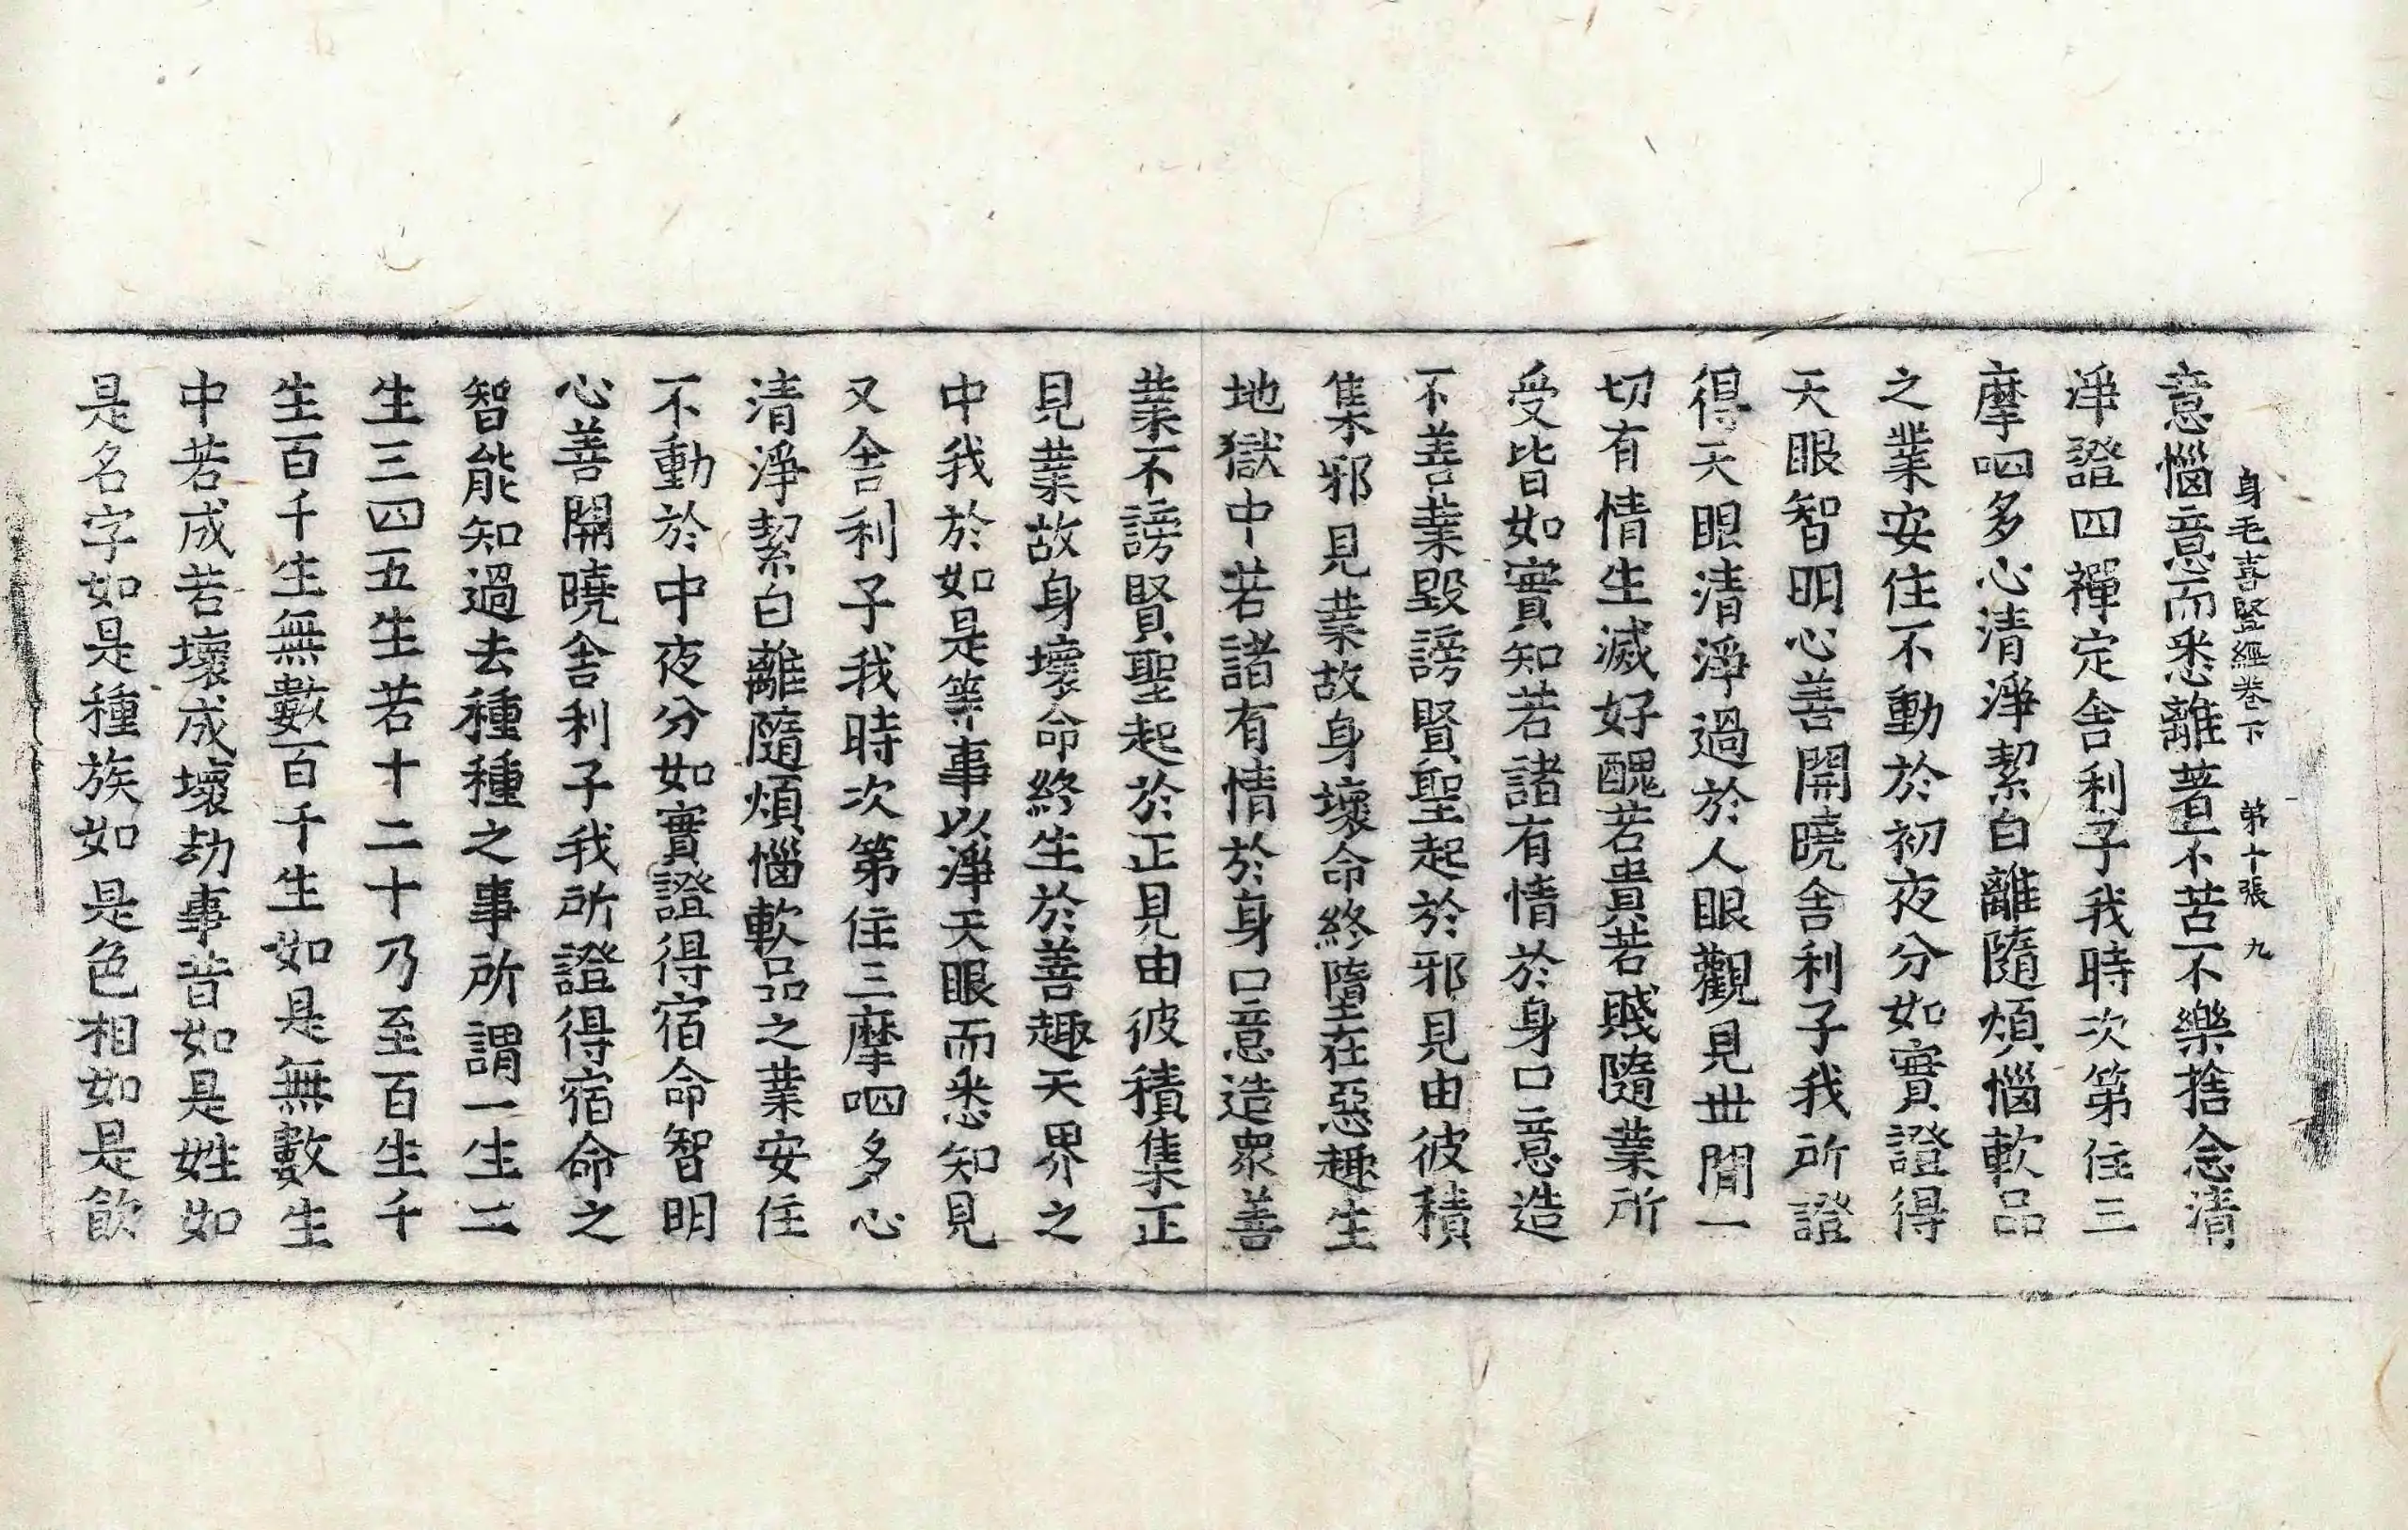 身毛喜竪經卷下 苐十張 九
意惱意而悉離著不苦不樂捨念清
淨證四禪定舍利子我時次第住三
摩呬多心清淨絜白離隨煩惱軟品
之業安住不動於初夜分如實證得
天眼智明心善開曉舍利子我所證
得天眼清淨過於人眼觀見丗間一
切有情生滅好醜若貴若賤隨業所
受皆如實知若諸有情於身口意造
不善業毀謗賢聖起於邪見由彼積
集邪見業故身壞命終墮在惡趣生
地獄中若諸有情於身口意造衆善
業不謗賢聖起於正見由彼積集正
見業故身壞命終生於善趣天界之
中我於如是等事以淨天眼而悉知見
又舍利子我時次第住三摩呬多心
清淨絜白離隨煩惱軟品之業安住
不動於中夜分如實證得宿命智明
心善開曉舍利子我所證得宿命之
智能知過去種種之事所謂一生二
生三四五生若十二十乃至百生千
生百千生無數百千生如是無數生
中若成若壞成壞劫事昔如是姓如
是名字如是種族如是色相如是飮